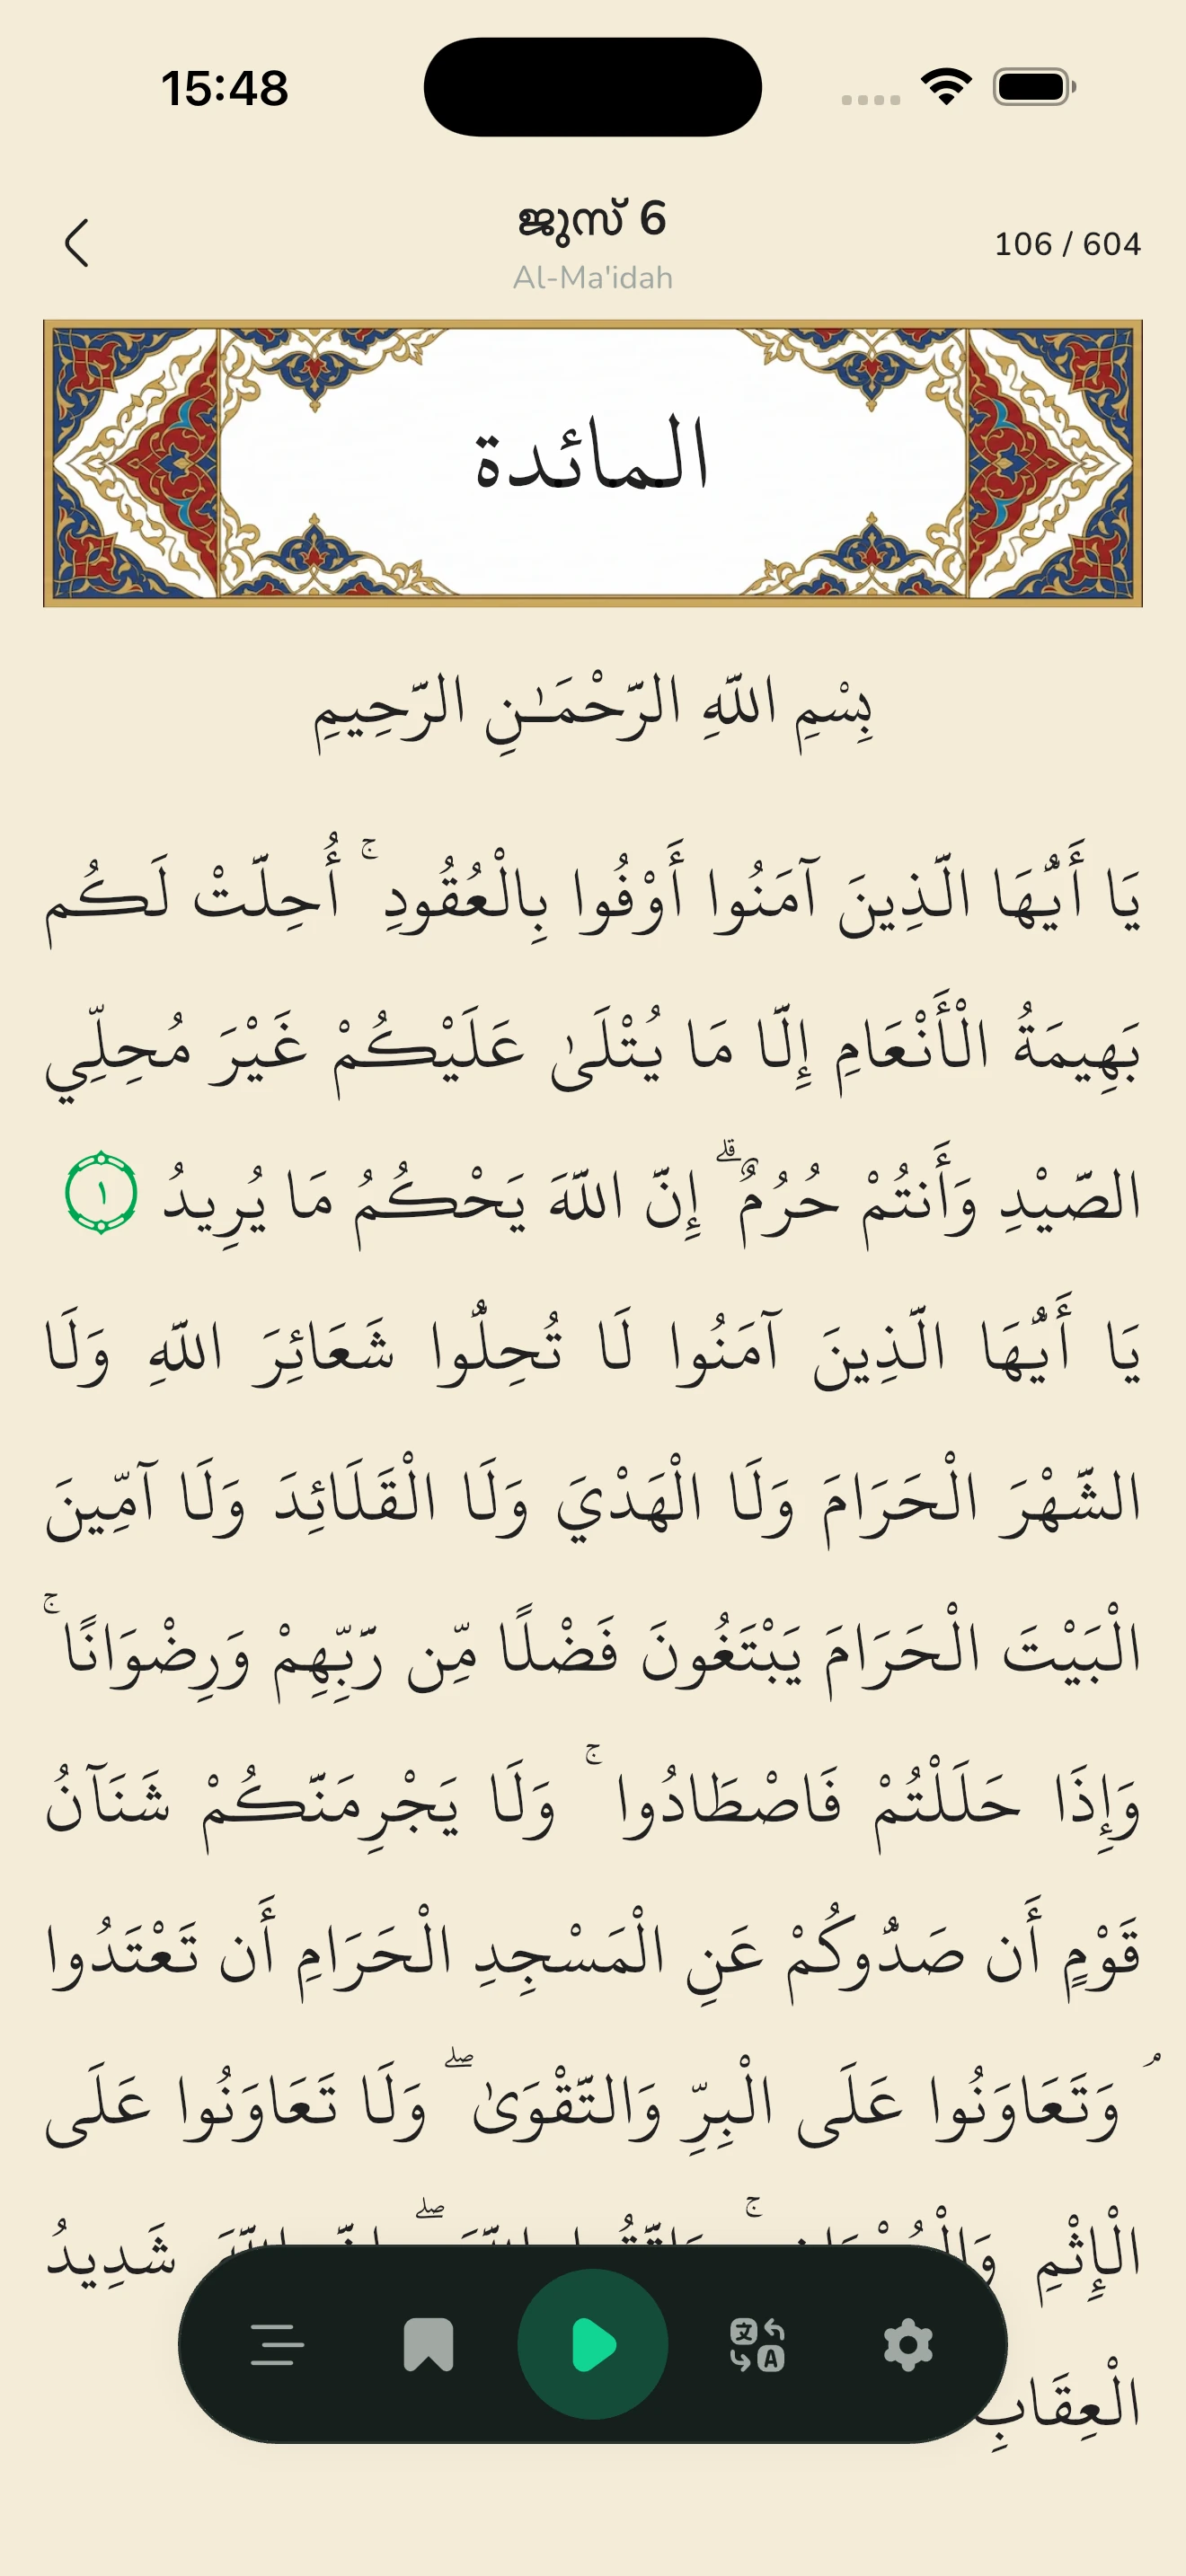 15:48
ജുസ് 6
Al-Ma'idah
106 / 604
المائدة
بِسْمِ اللَّهِ الرَّحْمَـٰنِ الرَّحِيمِ
يَا أَيُّهَا الَّذِينَ آمَنُوا أَوْفُوا بِالْعُقُودِ ۚ أُحِلَّتْ لَكُم
بَهِيمَةُ الْأَنْعَامِ إِلَّا مَا يُتْلَىٰ عَلَيْكُمْ غَيْرَ مُحِلِّي
الصَّيْدِ وَأَنتُمْ حُرُمٌ ۗ إِنَّ اللَّهَ يَحْكُمُ مَا يُرِيدُ ١
يَا أَيُّهَا الَّذِينَ آمَنُوا لَا تُحِلُّوا شَعَائِرَ اللَّهِ وَلَا
الشَّهْرَ الْحَرَامَ وَلَا الْهَدْيَ وَلَا الْقَلَائِدَ وَلَا آمِّينَ
الْبَيْتَ الْحَرَامَ يَبْتَغُونَ فَضْلًا مِّن رَّبِّهِمْ وَرِضْوَانًا ۚ
وَإِذَا حَلَلْتُمْ فَاصْطَادُوا ۚ وَلَا يَجْرِمَنَّكُمْ شَنَآنُ
قَوْمٍ أَن صَدُّوكُمْ عَنِ الْمَسْجِدِ الْحَرَامِ أَن تَعْتَدُوا
ۘ وَتَعَاوَنُوا عَلَى الْبِرِّ وَالتَّقْوَىٰ ۖ وَلَا تَعَاوَنُوا عَلَى
الْإِثْمِ شَدِيدُ
الْعِقَابِ